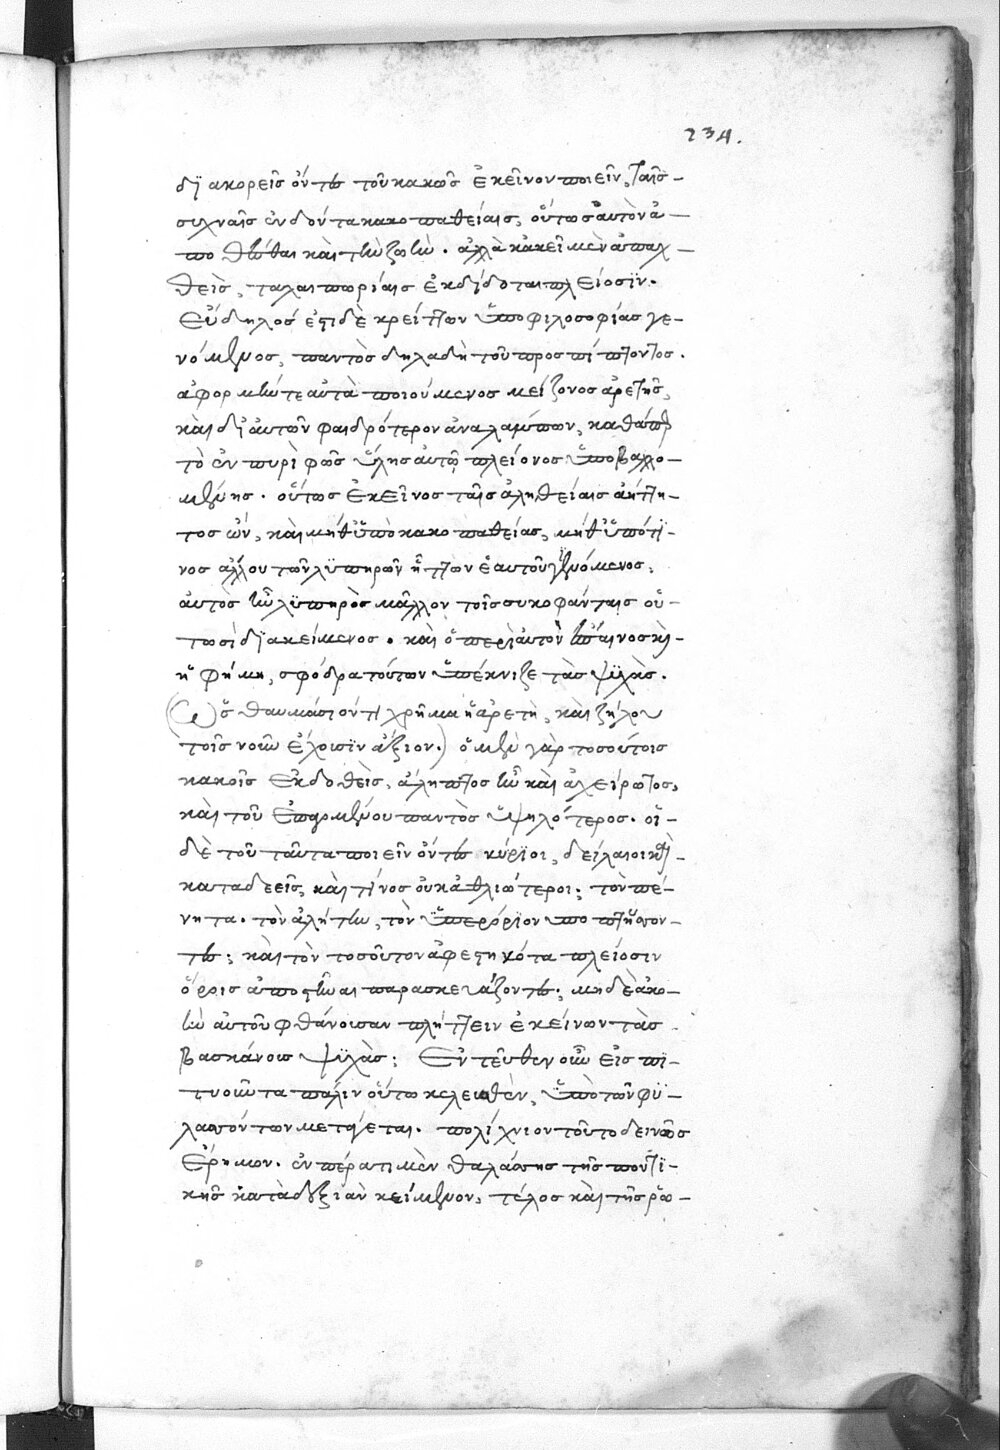 234.
διακορεῖς ὄντες τοῦ κακῶς ἐκεῖνον ποιεῖν, ταῖς
συχναῖς ἐνδόντα κακοπαθείαις, οὕτως αὐτὸν ἀ-
ποθέσθαι καὶ τὴν ζωήν. ἀλλὰ κἀκεῖ μὲν ἀπαχ-
θεὶς, ταλαιπωρίαις ἐκδίδοται πλείοσιν.
Εὔδηλος ἔτι δὲ κρείττων ὑπὸ φιλοσοφίας γε-
νόμενος, παντὸς δηλαδὴ τοῦ προσπίπτοντος.
ἀφορμήν τε αὐτὰ ποιούμενος μείζονος ἀρετῆς,
καὶ δι αὐτῶν φαιδρότερον ἀναλάμπων, καθάπερ
τὸ ἐν πυρὶ φῶς ὕλης αὐτῷ πλείονος ὑποβαλλο-
μένης. οὕτως ἐκεῖνος ταῖς ἀληθείαις ἀήττη-
τος ὤν, καὶ μήθ ὑπὸ κακοπαθείας, μήθ ὑπό τι-
νος ἄλλου τῶν λυπηρῶν ἥττων ἑαυτοῦ γενόμενος,
αὐτὸς ἦν λυπηρὸς μᾶλλον τοῖς συκοφάνταις οὕ-
τωσὶ διακείμενος. καὶ ὁ περὶ αὐτὸν ἔπαινος καὶ
ἡ φήμη, σφόδρα τούτων ὑπέκνιζε τὰς ψυχάς.
(Ὣς θαυμάσιόν τι χρῆμα ἡ ἀρετὴ, καὶ ζήλου
τοῖς νοῦν ἔχουσιν ἄξιον.) ὁ μὲν γὰρ τοσούτοις
κακοῖς ἐκδοθεὶς, ἄληπτος ἦν καὶ ἀχείρωτος,
καὶ τοῦ ἐπαρμένου παντὸς ὑψηλότερος. οἱ
δὲ τοῦ ταῦτα ποιεῖν ὄντες κύριοι, δείλαιοι καὶ
καταδεεῖς, καὶ τίνος οὐκ ἀθλιώτεροι; τὸν πέ-
νητα. τὸν ἀλήτην, τὸν ὑπερόριον ὑποπτήσσον-
τες; καὶ τὸν τοσοῦτον ἀφεστηκότα πλείοσιν
ὅροις ἀποστῆναι παρασκευάζοντες; μηδὲ ἀκο-
ὴν αὐτοῦ φθάνουσαν πλήττειν ἐκείνων τὰς
βασκάνους ψυχάς; Ἐντεῦθεν οὖν εἰς πι-
τυοῦντα πάλιν οὕτω κελευσθὲν, ὑπὸ τῶν φυ-
λασσόντων μετάγεται. πολίχνιον τοῦτο δεινῶς
ἔρημον. ἐν πέρατι μὲν θαλάσσης τῆς ποντι-
κῆς κατὰ δεξιὰν κείμενον, τέλος καὶ τῆς ῥω-